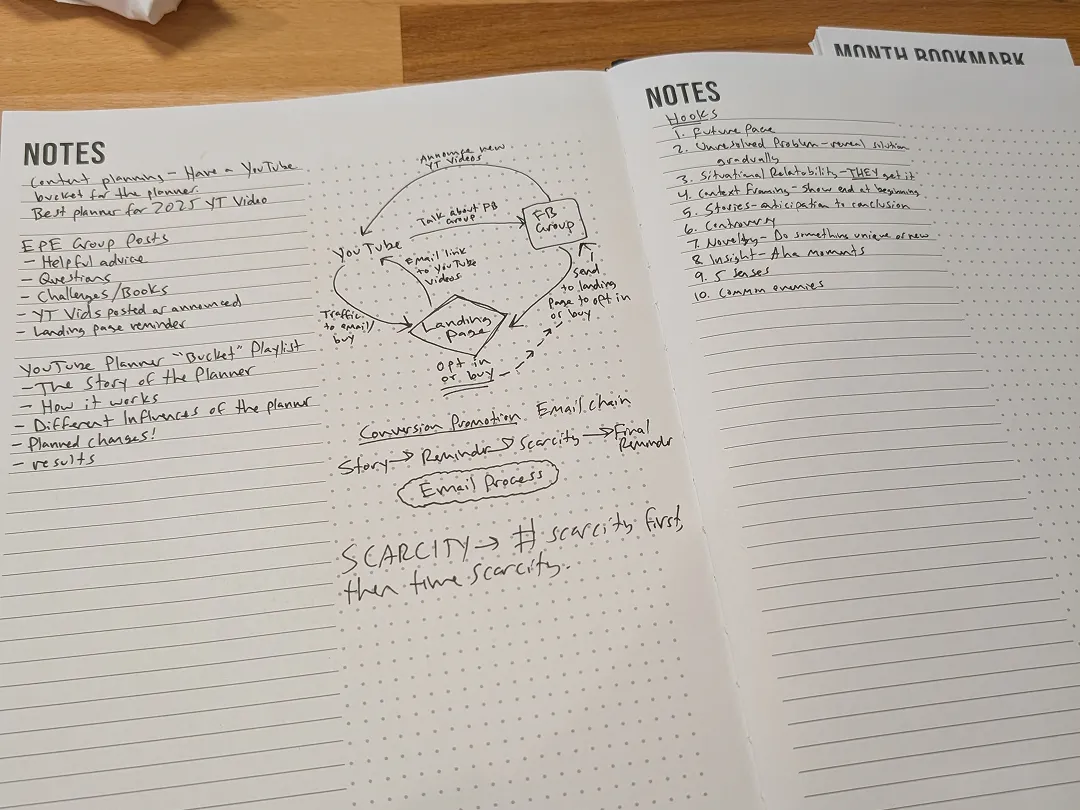 MONTH BOOKMARK
NOTES
Content planning - Have a YouTube
bucket for the planner.
Best planner for 2025 YT Video
EPE Group Posts
- Helpful advice
- Questions
- Challenges/Books
- YT Vids posted as announced
- Landing page reminder
YouTube Planner "Bucket" Playlist
- The Story of the Planner
- How it works
- Different Influences of the planner
- Planned changes!
- results
Announce new
YT Videos
Talk about FB
Group
FB
Group
YouTube
Email link
to YouTube
Videos
Send
to landing
page to opt in
or buy
Traffic
to email/
buy
Landing
page
opt in
or buy
Conversion Promotion Email chain
Story → Reminder → Scarcity → Final
Reminder
Email Process
SCARCITY → # scarcity first,
then time scarcity.
NOTES
Hooks
1. Future Pace
2. Unresolved Problem - reveal solution
gradually
3. Situational Relatability - THEY get it
4. Context Framing - Show end at beginning
5. Stories - anticipation to conclusion
6. Controversy
7. Novelty - Do something unique or new
8. Insight - Aha moments
9. 5 senses
10. Common enemies